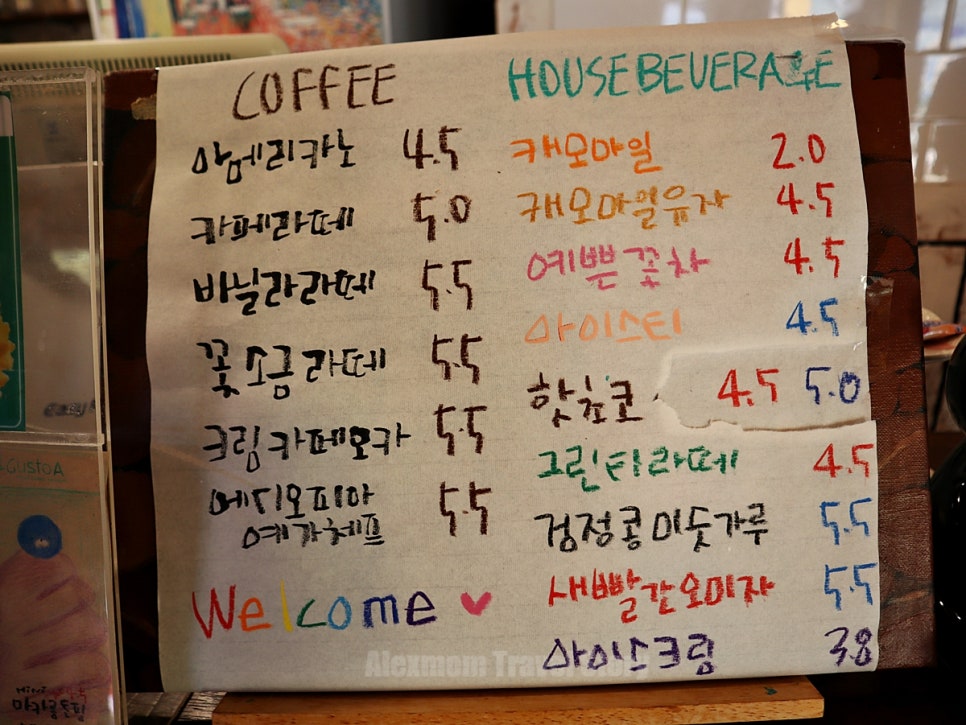 COFFEE
아메리카노 4.5
카페라떼 5.0
바닐라라떼 5.5
꽃소금라떼 5.5
크림카페모카 5.5
에디오피아 5.5
예가체프
Welcome
HOUSE BEVERAGE
캐모마일 2.0
캐모마일유자 4.5
예쁜꽃차 4.5
아이스티 4.5
핫쵸코 4.5 5.0
그린티라떼 4.5
검정콩미숫가루 5.5
새빨간오미자 5.5
아이스크림 3.8
GUSTOA
Alexmom Travel